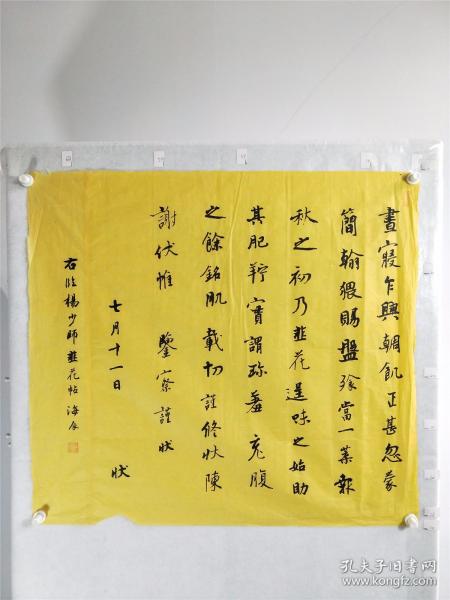 晝寢乍興輖飢正甚忽蒙
簡翰猥賜盤飧當一葉報
秋之初乃韭花逞味之始助
其肥羜實謂珍羞充腹
之餘銘肌載切謹修狀陳
謝伏惟 鑒察謹狀
七月十一日
狀
右臨楊少師韭花帖 海
孔夫子旧书网
www.kongfz.com